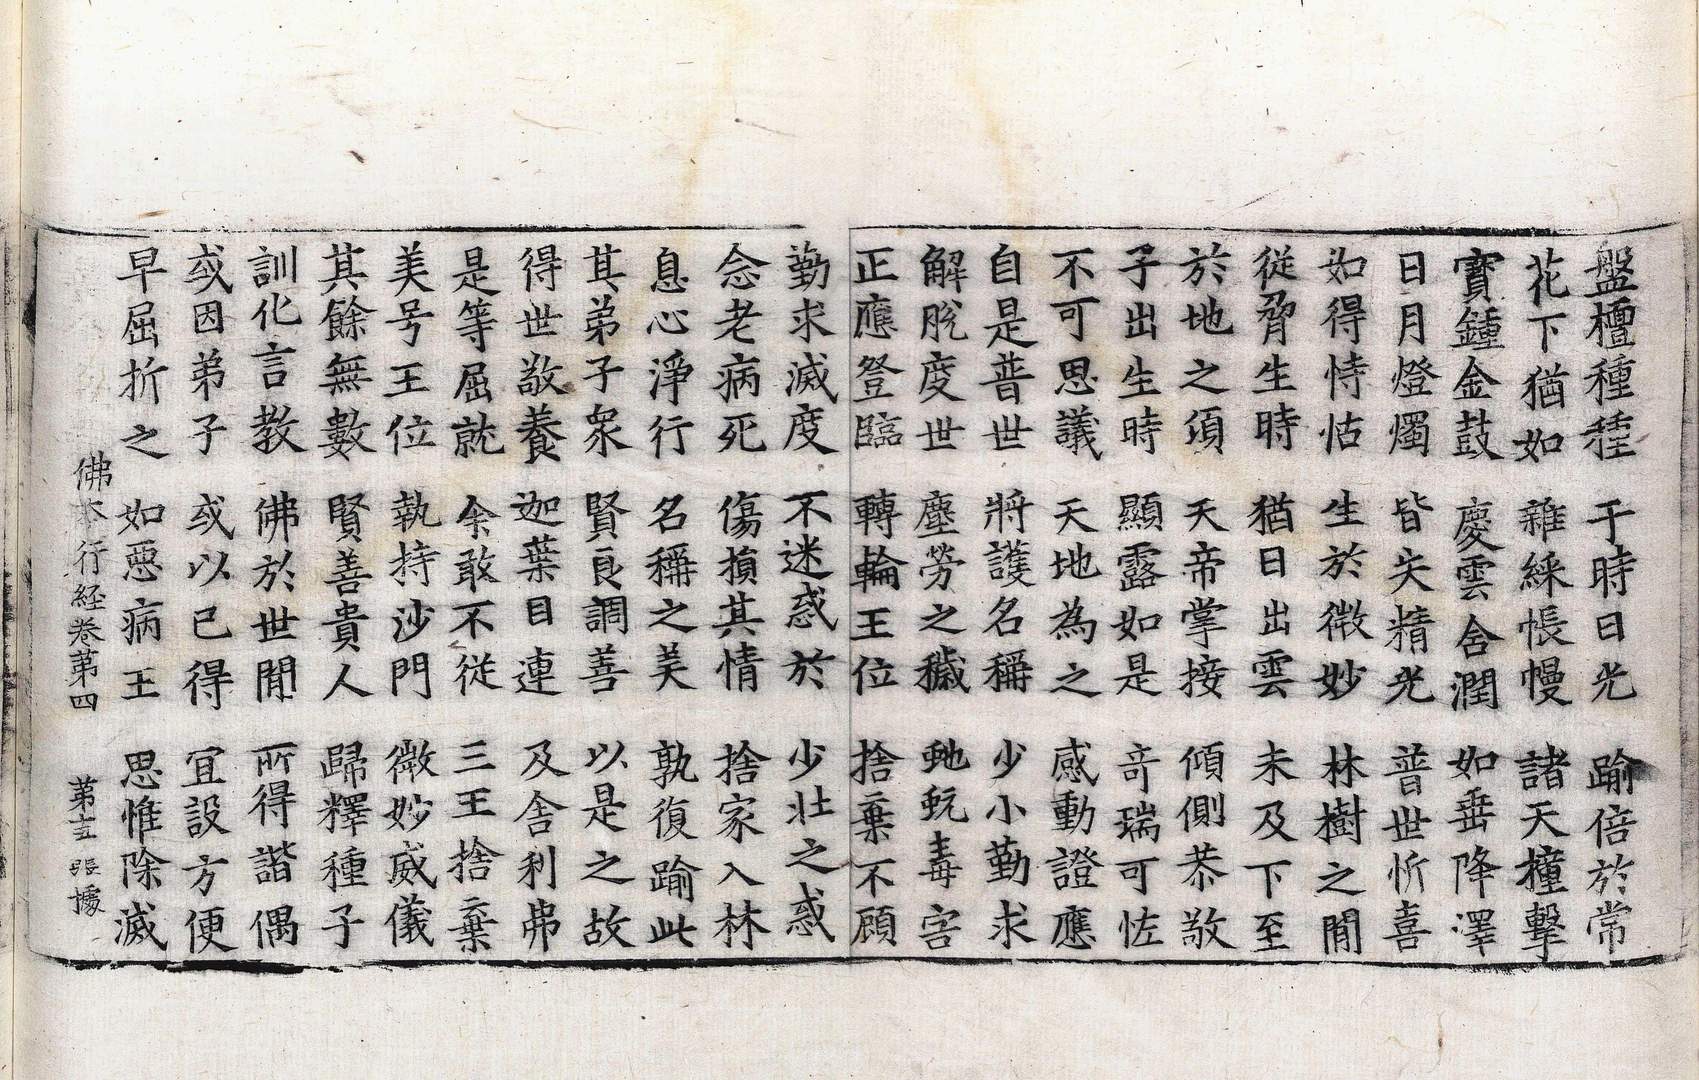 盤檀種種 于時日光 踰倍於常
花下猶如 雜綵帳幔 諸天撞擊
寶鍾金鼓 慶雲含潤 如垂降澤
日月燈燭 皆失精光 普世忻喜
如得恃怙 生於微妙 林樹之間
從脅生時 猶日出雲 未及下至
於地之須 天帝掌接 傾側恭敬
子出生時 顯露如是 奇瑞可恠
不可思議 天地為之 感動證應
自是普世 將護名稱 少小勤求
解脫度世 塵勞之穢 虵蚖毒害
正應登臨 轉輪王位 捨棄不顧
勤求滅度 不迷惑於 少壯之惑
念老病死 傷損其情 捨家入林
息心淨行 名稱之美 孰復踰此
其弟子衆 賢良調善 以是之故
得世敬養 迦葉目連 及舍利弗
是等屈就 余敢不從 三王捨棄
美号王位 執持沙門 微妙威儀
其餘無數 賢善貴人 歸釋種子
訓化言教 佛於世間 所得諧偶
或因弟子 或以已得 宜設方便
早屈折之 如惡病王 思惟除滅
佛本行経卷第四 第十五 張據